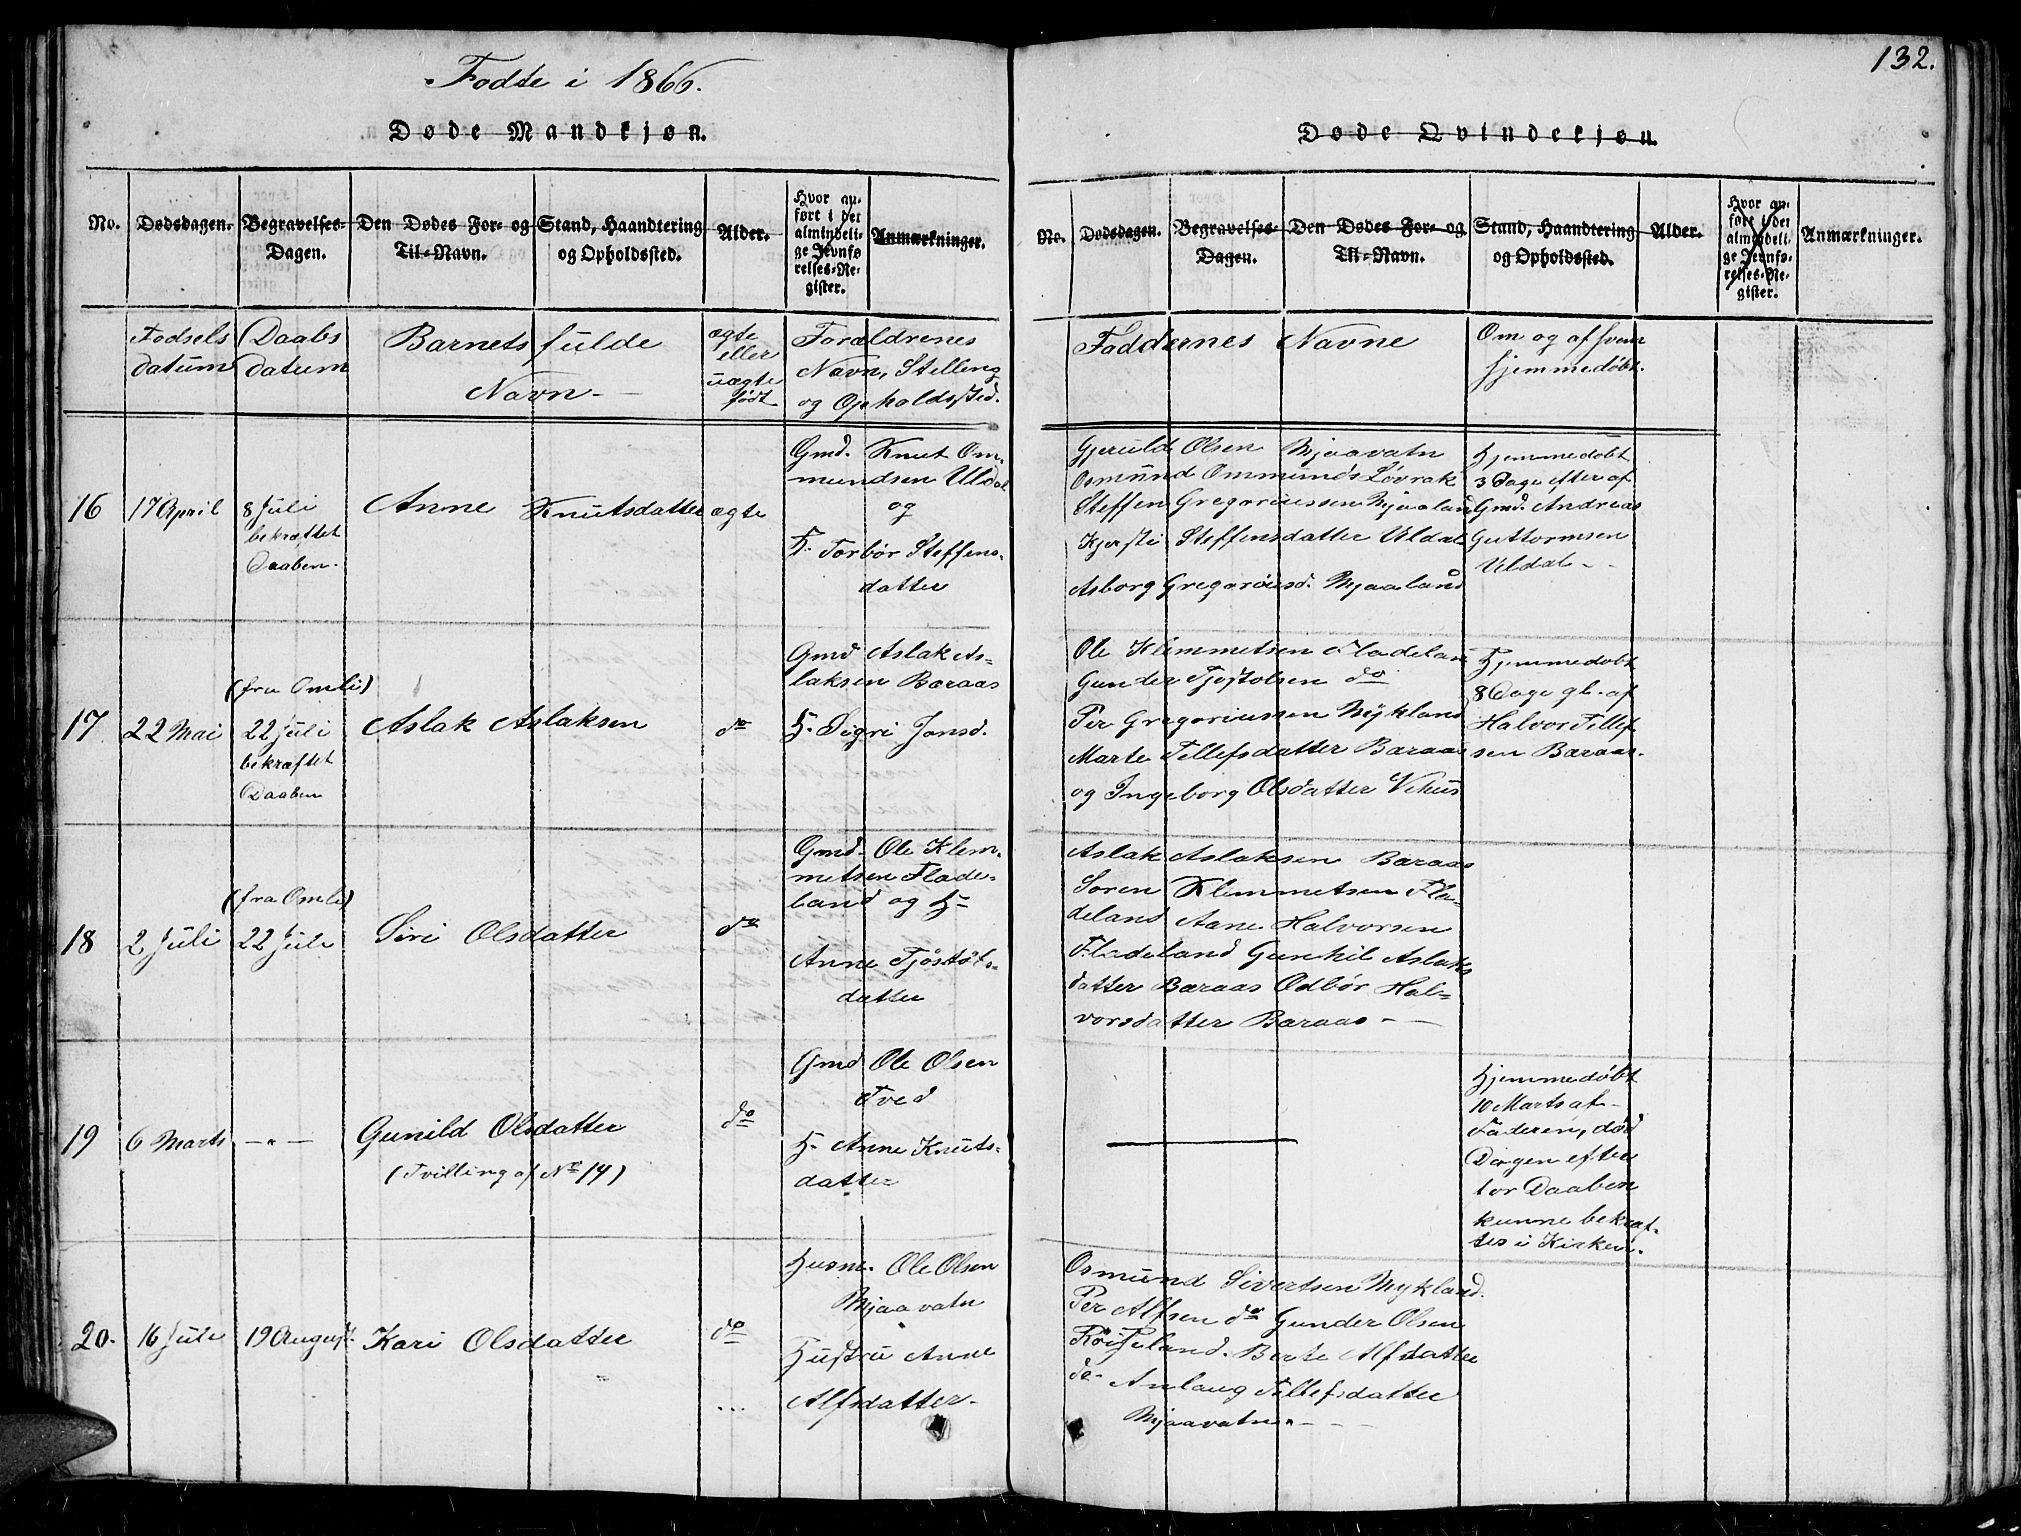 Fødte i 1866.
Døde Mandkjøn.
No. Dødsdagen. Begravelses-Dagen. Den Dødes For- og Til-Navn. Stand, Haandtering og Opholdssted. Alder. Hvor anført i det almindelige Jevnførelses-Register. Anmærkninger.
Fødsels datum
Daabs datum
Barnets fulde Navn
ægte eller uægte født
Forældrenes Navn, Stilling og Opholdssted.
16
17 April
8 Juli
bekræftet
Daaben.
Anne Knutsdatter
ægte
Gmd. Knut Om-
mundsen Uldal
og
H. Torbør Steffens-
datter
17
22 Mai
(fra Omli)
22 Juli
bekræftet
Daaben
Aslak Aslaksen
do
Gmd Aslak As-
laksen Baraas
H. Sigri Jonsd.
18
2 Juli
(fra Omli)
22 Juli
Siri Olsdatter
do
Gmd. Ole Klem-
metsen Flade-
land og H-
Anne Tjøstøls-
datter
19
6 Marts
— " —
Gunild Olsdatter
(Tvilling af No 14)
do
Gmd Ole Olsen
Tved
H. Anne Knuts-
datter
20.
16 Juli
19 August.
Kari Olsdatter
do
Husm. Ole Olsen
Mjaavatn
Hustru Anne
Alfsdatter.
132.
Døde Qvindekjøn.
No. Dødsdagen. Begravelses-Dagen. Den Dødes For- og Til-Navn. Stand, Haandtering og Opholdssted. Alder. Hvor anført i det almindelige Jevnførelses-Register. Anmærkninger.
Faddernes Navne
Om og af hvem
hjemmedøbt.
Gjeruld Olsen Mjaavatn
Osmund Ommunds Løvrak
Steffen Gregoriussen Mjaaland
Kjersti Steffensdatter Uldal
Asborg Gregoriusd. Mjaaland
Hjemmedøbt
3 Dage efter af
Gmd. Andreas
Guttormsen
Uldal
Ole Klemmetsen Fladeland
Gunder Tjøstolsen do
Per Gregoriussen Mykland
Marte Tellefsdatter Baraas
og Ingeborg Olsdatter Vehus
Hjemmedøbt
8 Dage gl. af
Halvor Tellef
sen Baraas.
Aslak Aslaksen Baraas
Søren Klemmetsen Fla-
deland Aane Halvorsen
Fladeland Gunhil Aslaks
datter Baraas Odbør Hal-
vorsdatter Baraas
Hjemmedøbt
10 Marts af
Faderen, død
Dagen efter
før Daaben
kunne bekræf-
tes i Kirken.
Osmund Sivertsen Mykland.
Per Alfsen do Gunder Olsen
Røiseland. Berte Alfsdatter
do Anlaug Tellefsdatter
Mjaavatn